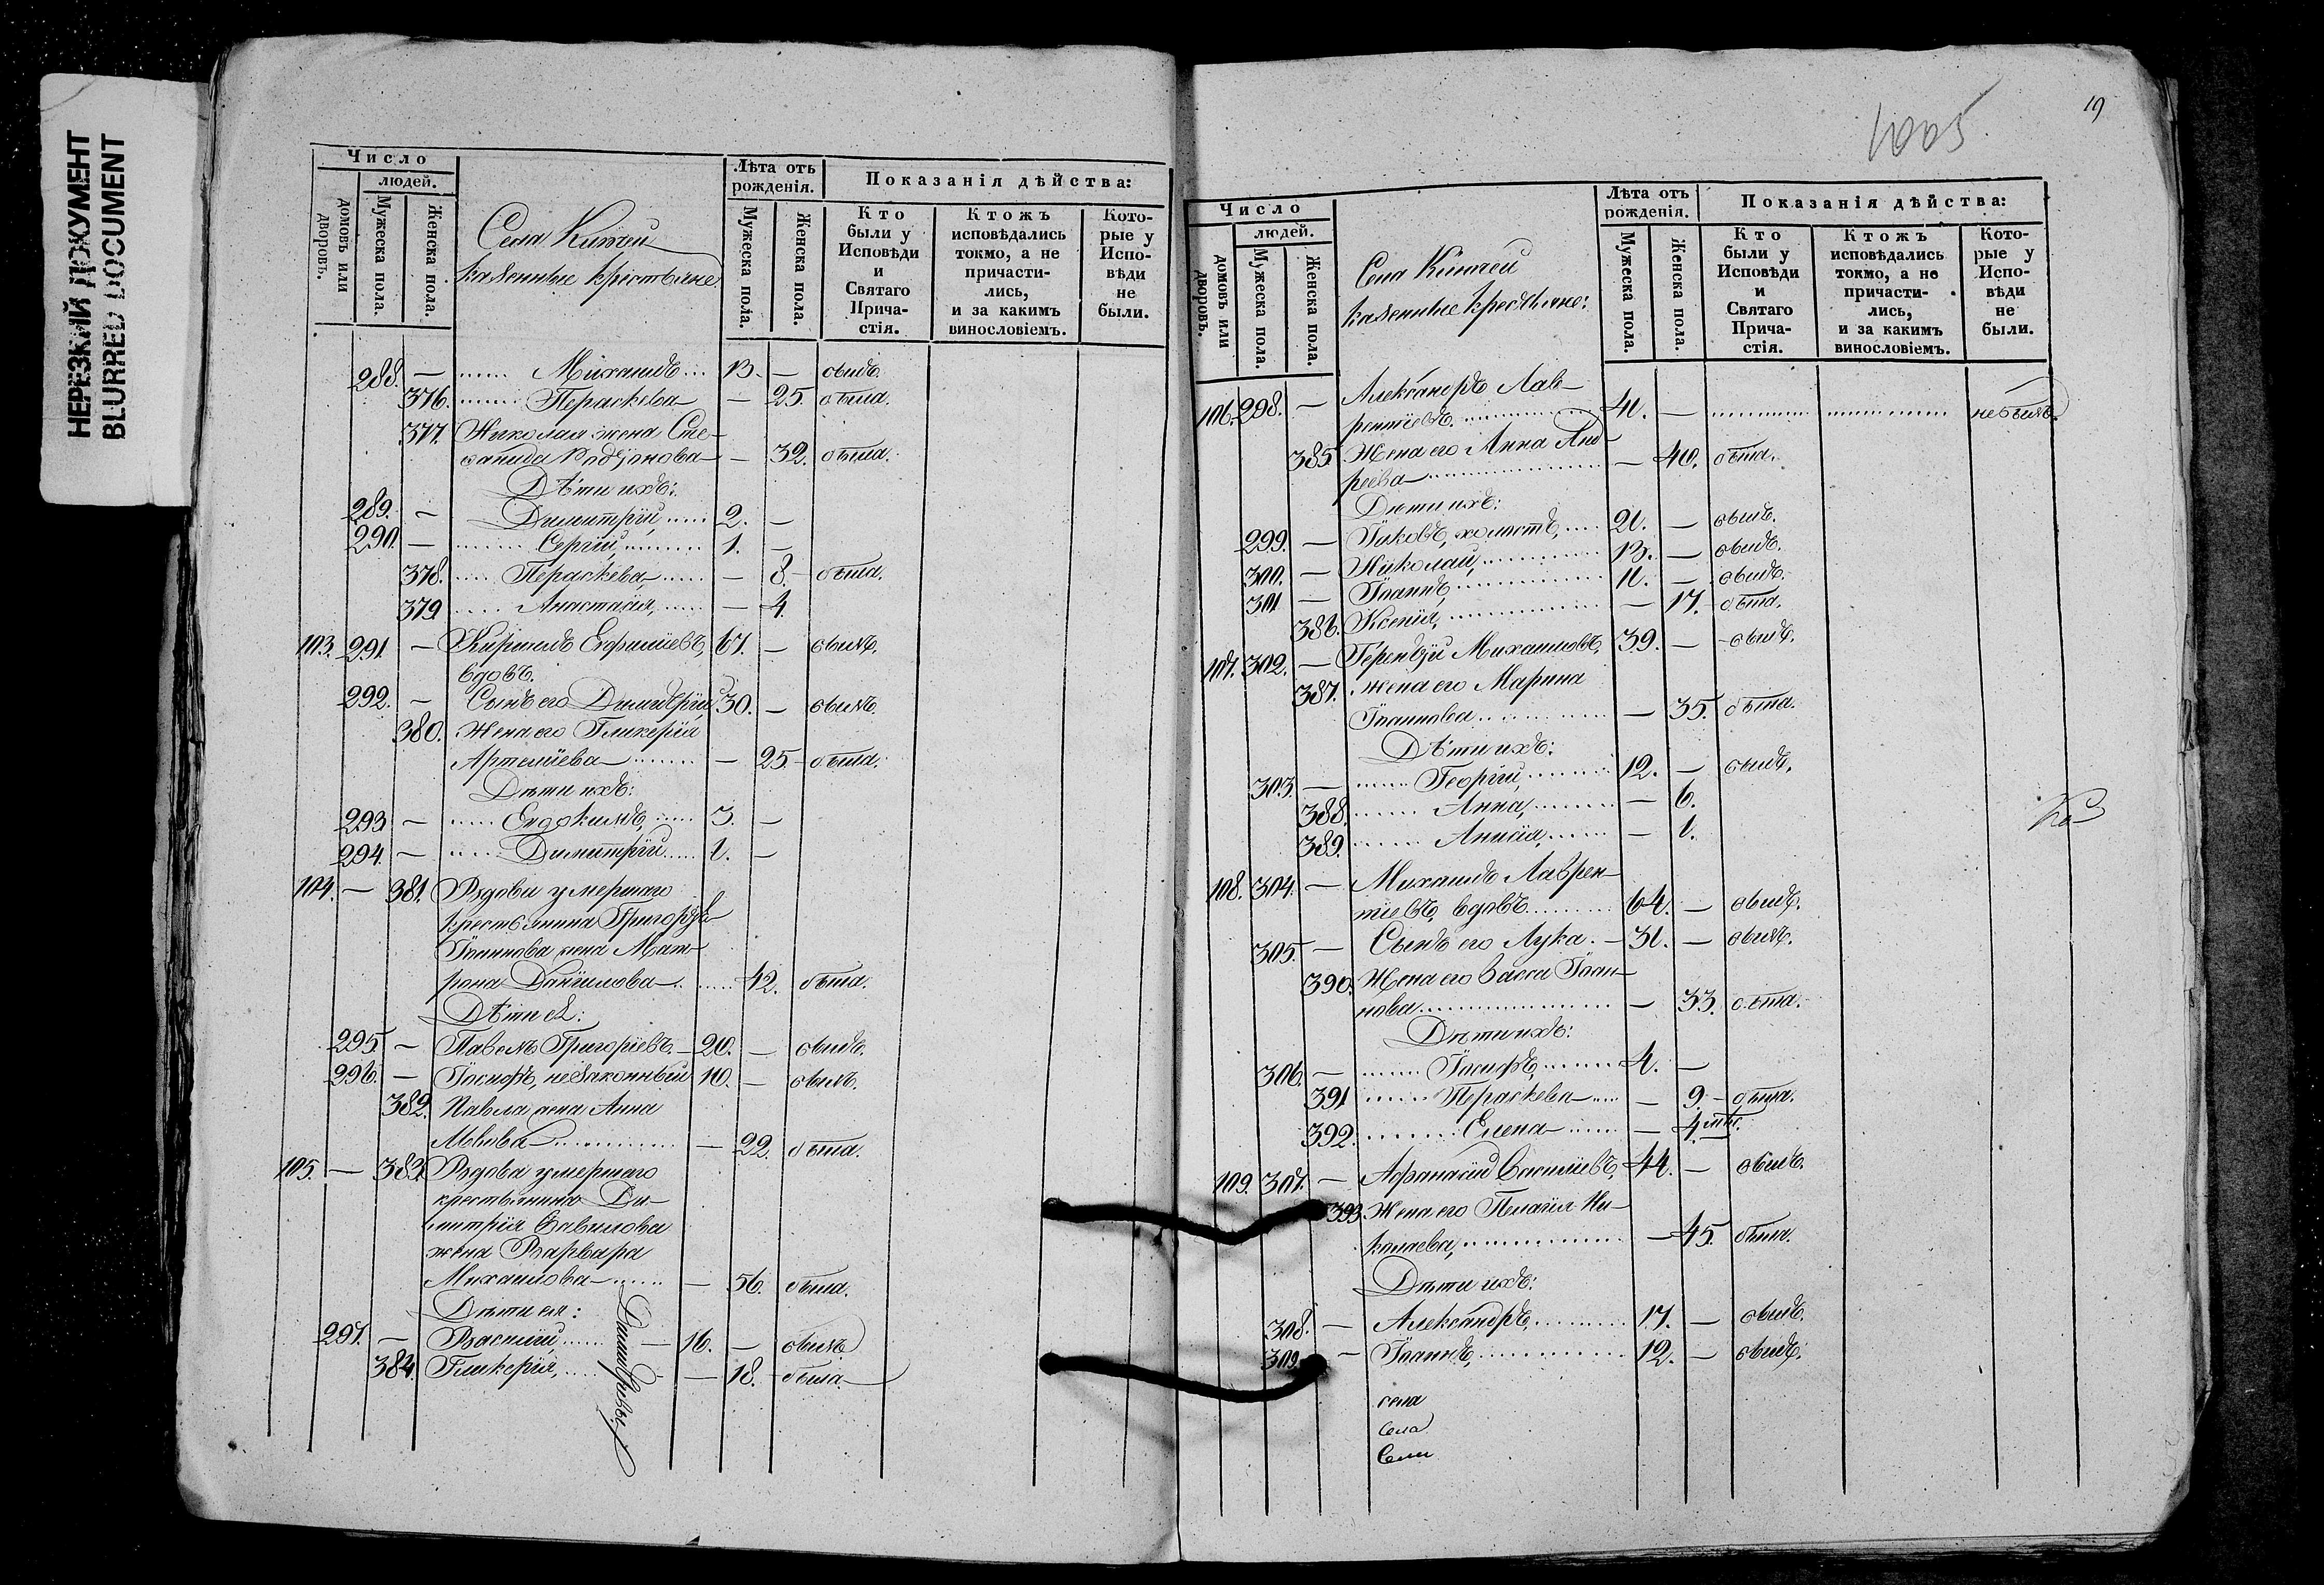 НЕРЕЗКИЙ ДОКУМЕНТ
BLURRED DOCUMENT
Число
людей.
домовъ или дворовъ.
Мужеска пола.
Женска пола.
Села
казенные крестьяне
Лѣта отъ рожденія.
Мужеска пола.
Женска пола.
Показанія дѣйства:
Кто были у Исповѣди и Святаго Прича-стія.
Ктожъ исповѣдались токмо, а не причасти-лись, и за какимъ винословіемъ.
Кото-рые у Испо-вѣди не были.
288. — Михаилъ 13. — былъ.
376. Параскева — 25. была.
377. Николая жена Сте-
Родіонова — 32. была.
Дѣти ихъ:
289. — Димитрій 2. —
290. — Сергій, 1. —
378. Параскева — 8. — была.
379 Анастасія, — 4.
103. 291. — Кириллъ 67. — былъ.
вдовъ.
292. — Сынъ его Димитрій 30. — былъ.
380. Жена его Гликерія
Артеміева — 25. — была.
Дѣти ихъ:
293 — Евдокимъ, 3. —
294. — Димитрій 1. —
104. — 381. Вдова умершаго
крестьянина Григорія
Іоаннова жена Мат-
рона Даніилова 42. была.
Дѣти ея:
295. — Павелъ Григоріевъ. — 20. — былъ.
296. — Іосифъ, незаконный 10. — былъ.
382. Павла жена Анна
Львова — 22. была.
105. — 383. Вдова умершаго
крестьянина Ди-
митрія Вавилова
жена Варвара
Михаилова — 56. была.
Дѣти ея:
297. — Василій, — 16. — былъ
384. Гликерія, — 18. — была.
Димитріевы
1005
19
Число
людей.
домовъ или дворовъ.
Мужеска пола
Женска пола.
Села
казенные крестьяне:
Лѣта отъ рожденія.
Мужеска пола.
Женска пола.
Показанія дѣйства:
Кто были у Исповѣди и Святаго Прича-стія.
Ктожъ исповѣдались токмо, а не причасти-лись, и за какимъ винословіемъ.
Кото-рые у Испо-вѣди не были.
106. 298. — Александръ Лав-
рентіевъ. 41. — не былъ.
385. Жена его Анна Анд-
реева — 40. была.
Дѣти ихъ:
299. — Іаковъ, холостъ, 21. — былъ.
300. — Николай, 13. — былъ.
301 — Іоаннъ, 11. — былъ.
386. Ксенія, — 17. — была.
107. 302. — Терентій Михаиловъ, 39. — былъ.
387. жена его Марина
Іоаннова — 35. была.
Дѣти ихъ:
303. — Георгій, 12. — былъ.
388. Анна, — 6.
389. Анисія, — 1.
108. 304. — Михаилъ Лаврен-
тіевъ, вдовъ 64. — былъ.
305. — Сынъ его Лука. — 31. — былъ.
390. Жена его Васса Іоан-
нова — 33. была.
Дѣти ихъ:
306. — Іосифъ, 4. —
391 Параскева — 9 — была.
392. Елена — 4 мѣс.
109. 307. — Афанасій Василіевъ, 44. — былъ.
393 Жена его Пелагія Ни-
колаева, — 45. была.
Дѣти ихъ:
308. — Александръ, 17. — былъ.
309. — Іоаннъ, 12. — былъ.
села
Села
Села